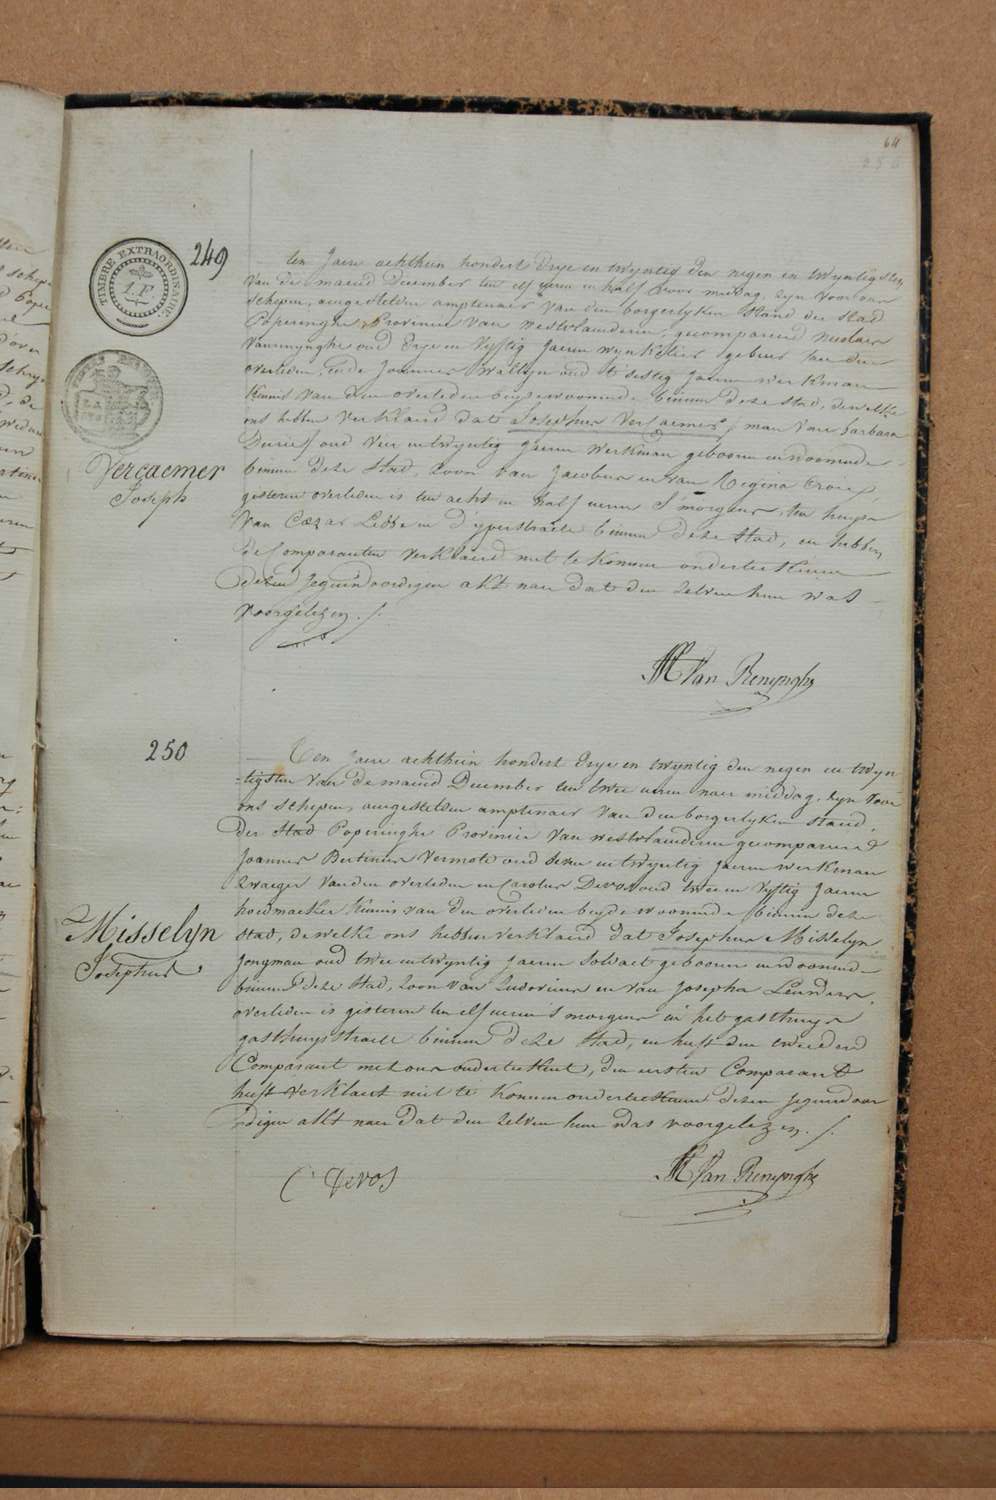 64
TIMBRE EXTRAORDINAIRE
1. F
249
ten Jaere achthien hondert drye en twyntig den negen en twyntigsten
Van de maand December ten elf uren en half voor middag, zyn voor ons
Schepen, aengestelden amptenaer Van den borgerlyken Stand der Stad
Poperinghe Provincie Van westvlaenderen gecompareerd
oud drye en vyftig Jaeren gebuer Van den
overleden, ende Joannes oud sestig Jaeren werkman
Kennis Van den overleden beyde woonende binnen deze Stad, de welke
ons hebben Verklaerd dat Josephus Vercaemer, man van Barbara
oud Vier en twyntig Jaeren werkman geboren en woonende
binnen deze Stad, Zoon van Jacobus en van Regina
gisteren overleden is ten acht en half uren S'morgens, ten huyse
Van Cæzar in D'yperstraete binnen deze Stad, en hebben
de Comparanten Verklaerd niet te Konnen onderteekenen
dezen Jegenwoordigen akt naer dat den Zelven hun was
voorgelezen ./.
Vercaemer
Joseph
Van Renynghe
250
Ten Jaere achthien hondert drye en twyntig den negen en twyn-
-tigsten van de maend December ten twee uren naer middag, zyn voor
ons Schepen, aengestelden amptenaer Van den borgerlyken Stand
der Stad Poperinghe Provincie Van westvlaenderen gecompareerd
Joannes Bertinus Vermote oud Seven en twyntig Jaeren werkman
Zwaeger Van den overleden en Carolus Devos oud twee en vyftig Jaeren
hoedmaeker Kennis van den overleden beyde woonende binnen deze
Stad, de welke ons hebben Verklaerd dat Josephus Misselyn
Jongman oud twee en twyntig Jaeren Soldaet geboren en woonende
binnen deze Stad, Zoon Van Ludovicus en van Josepha Leenders,
overleden is gisteren ten elf uren S'morgens in het gasthuys
gasthuysstraete binnen deze Stad, en heeft den tweeden
Comparant met ons onderteekent, den eersten Comparant
heeft verklaert niet te Konnen onderteekenen dezen Jegenwoor
digen akt naer dat den Zelven hun was voorgelezen ./.
Misselyn
Josephus
C Devos
Van Renynghe